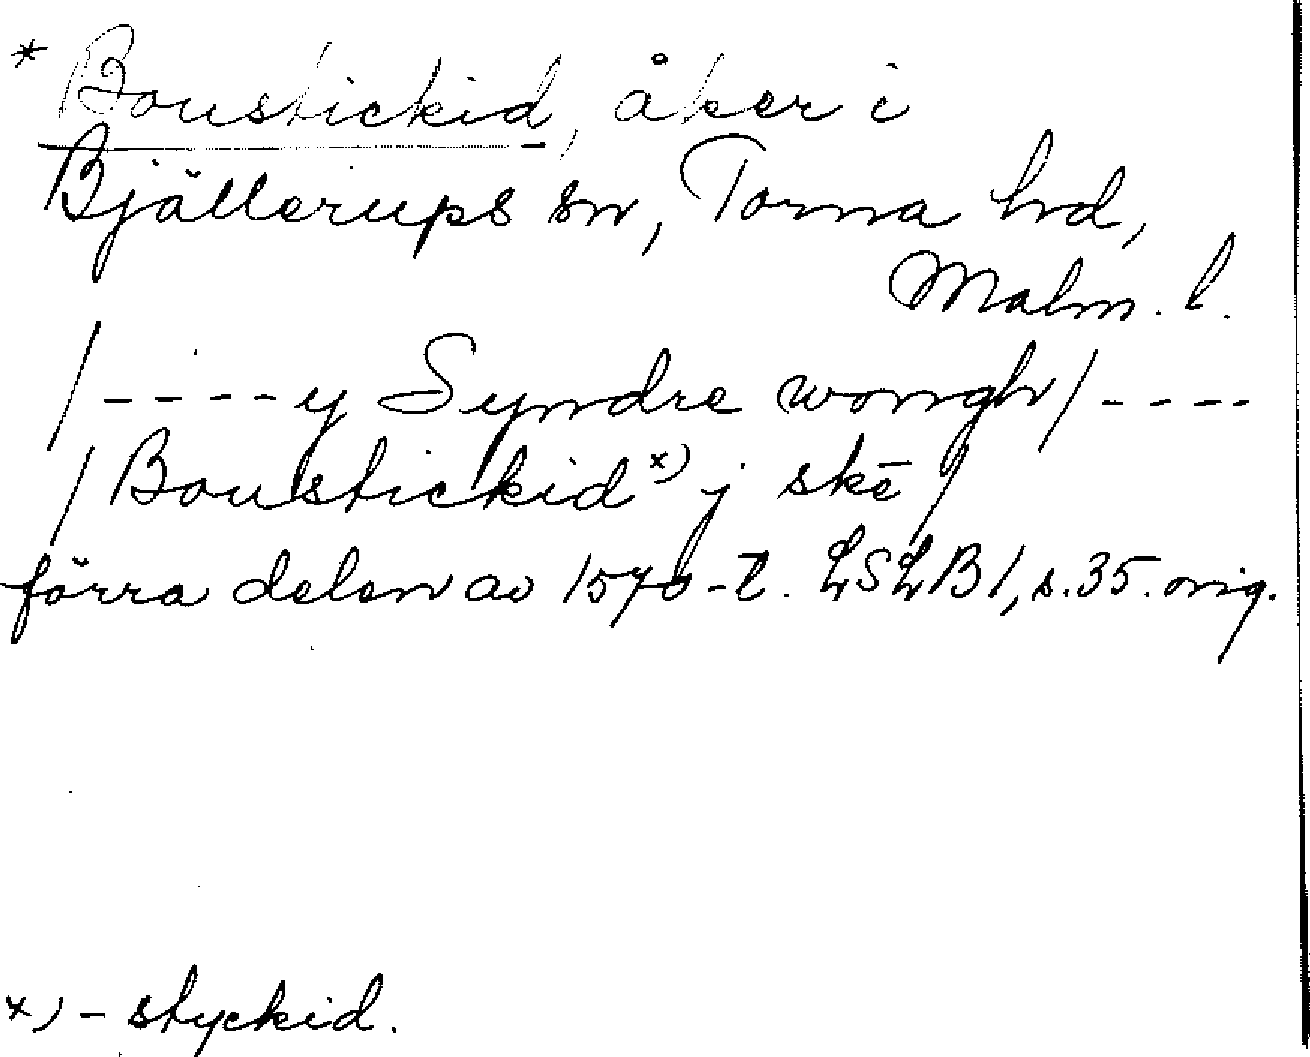 * Boustickid, åker i
Bjällerups sn, Torna hd,
Malm. l.
/----y Syndre wongh/----
/Boustickid x) j skē/
förra delen av 1570-t. LSLB1, s.35. orig.
x) - styckid.